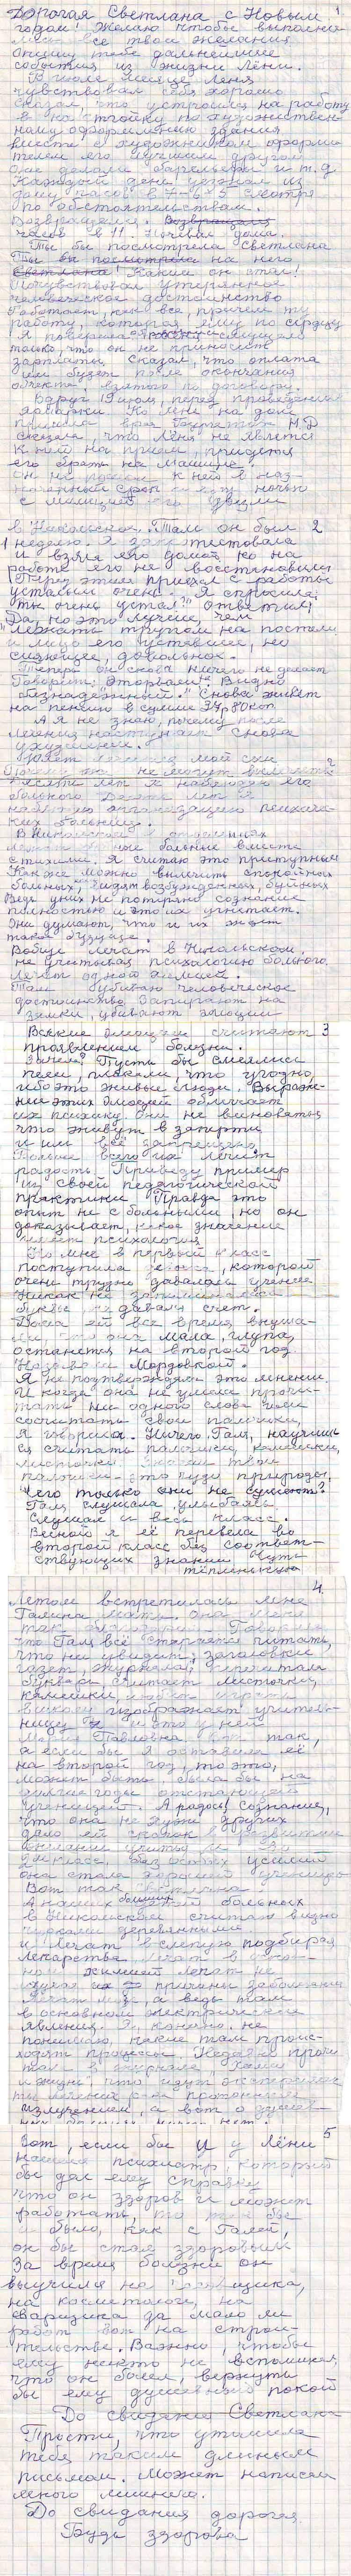 Дорогая Светлана с Новым 1.
годом! Желаю чтобы выполни
все твои желания.
Опишу тебе дальнейшие
события из жизни Лёни.
В июле месяце Лёня
чувствовал себя хорошо
сказал, что устроился на работу
в по художествен-
ному оформлению здания
вместе с художником оформи
телем его лучшим другом
Они делали барельефы и т.д.
Каждый день уезжал из
дому часов в 6-7-8 смотря
по обстоятельствам.
Возвращался. Возвращался
часов в 11. Ночевал дома.
Ты бы посмотрела Светлана
Ты бы посмотрела на него
Светлана! Каким он стал!
Почувствовал утерянное
человеческое достоинство
Работает, как все, причем ту
работу, которая ему по сердцу
Я поверила, смущало
только что он не приносит
зарплаты. Сказал, что оплата
им будет после окончания
объекта взятого по договору.
Вдруг 19 июля, перед проведением
ярмарки ко мне на дом
пришла врач Н.Д
сказала, что Лёня не является
к ней на прием, придется
его брать на машине.
Он не к ней в наз-
наченный срок и его ночью
с милицией его увезли
в Никольское. Там он был 2
1 неделю. Я запротестовала
и взяла его домой, но на
работе его не восстановили
Перед этим приехал с работы
уставшим очень. Я спросила:
"ты очень устал?" ответил:
"Да, но это лучше, чем
лежать трупом на постели
лицо его уставшее, но
сияющее, довольное.
Теперь он снова ничего не делает
Говорит: "Оторвали. Видно
безнадежный." Снова живет
на пенсии в сумме 34р,80коп
А я не знаю, почему после
лечения наступает снова
ухудшение.
мой сын
Почему его не могут вылечить?
Десять лет я наблюдаю его
больного. Десять лет я
наблюдаю организацию психичес
ких больниц.
В Никольской в отделениях
лежат больные вместе
с тихими. Я считаю это преступным
Как же можно вылечить спокойных
больных, видят возбужденных, буйных
Ведь у них не потеряно сознание
полностью и это их угнетает.
Они думают, что и их ждет
такое будущее.
Вообще лечат в Никольском,
не учитывая психологию больного,
лечат одной химией.
Там убивают человеческое
достоинство. Запирают на
замки, убивают эмоции
Всякие эмоции считают 3
проявлением болезни.
Зачем? Пусть бы смеялись
пели, плакали что угодно,
ибо это живые люди. Выраже-
ние этих эмоций облегчает
их психику. Они не виноваты
что живут в заперти
и им всё запрещено
Больше всего их лечит
радость. Приведу пример
из своей педагогической
практики. Правда это
опыт не с больными, но он
доказывает, какое значение
имеет психология.
Ко мне в первый класс
поступила девочка, которой
очень трудно давалось учение
Никак не запоминала
буквы, не давался счет.
Дома ей все время внуша-
ли, что она мала, глупа,
останется на второй год
Называли Мордовкой.
Я не подтверждала это мнение.
И когда она не умела прочи-
тать ни одного слова или
сосчитать свои пальчики,
Я говорила. Ничего Галя, научишь
ся считать палочки, камешки,
листочки. Знаешь твои
пальчики - это чудо природы
Чего только они не сумеют?
Галя слушала, улыбаясь.
Слушал и весь класс.
Весной я её перевела во
второй класс без соответ-
ствующих знаний чуть
тёпленькую
4.
Летом встретилась мне
Галина мать. Она меня
так благодарила. Говорит,
что Галя всё старается читать,
что ни увидит, заголовки
газет, журналов, прочитала
букварь, считает листочки,
камешки,
в школу изображает учитель-
ницу и это у ней
Мария Павловна вот так,
а если бы я оставила её
на второй год, то это,
может быть, была бы на
долгие годы отстающей
ученицей. А радость сознание,
что она не хуже других
дало ей скачок в развитии
она стала хорошей ученицей
Вот так Светлана!
А наших больных
в Никольском считают видно
чурками деревянными
и лечат вслепую подбирая
лекарства.
химией лечат не
зная причины заболевания
а ведь там
в основном электрические
явления. Я конечно не
понимаю, какие там проис-
ходят процессы. Недавно прочи
тала в журнале "Химия
и жизнь", что идут эксперимен
ты лечения рака протонным
излучением, а вот о душев-
ных больных ничего нет.
Вот, если бы и у Лёни 5
нашелся психиатр, который
бы дал ему справку
что он здоров и может
работать, то так бы
и было, как с Галей,
он бы стал здоровым
За время болезни он
выучился на
на косметолога, на
сварщика да мало ли
работ вот на строи-
тельстве. Важно, чтобы
ему никто не вспоминал,
что он болел, вернуть
бы ему душевный покой
До свидания Светлана
Прости, что утомила
тебя таким длинным
письмом. Может написала
много лишнего.
До свидания дорогая.
Будь здорова